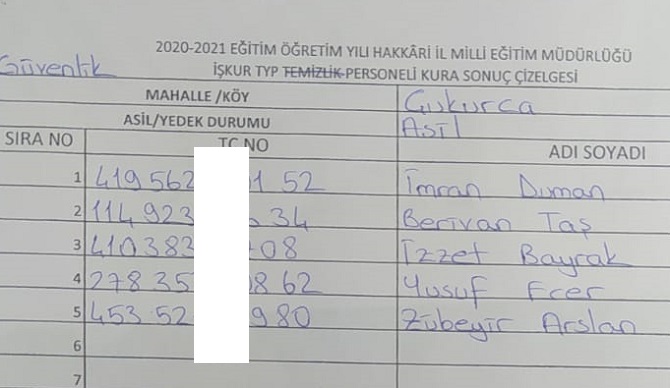 2020-2021 EĞİTİM ÖĞRETİM YILI HAKKÂRİ İL MİLLİ EĞİTİM MÜDÜRLÜĞÜ
Güvenlik İŞKUR TYP TEMİZLİK PERSONELİ KURA SONUÇ ÇİZELGESİ
MAHALLE /KÖY Çukurca
ASİL/YEDEK DURUMU Asil
SIRA NO TC NO ADI SOYADI
1 419 562 1 52 İmran Duman
2 114 923 34 Berivan Taş
3 410 383 08 İzzet Bayrak
4 278 35 8 62 Yusuf Ecer
5 453 52 980 Zübeyir Arslan
6
7